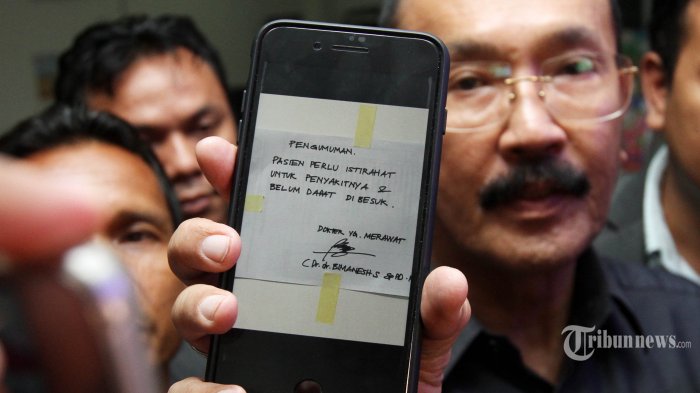 PENGUMUMAN.
PASIEN PERLU ISTIRAHAT
UNTUK PENYAKITNYA SZ
BELUM DAPAT DI BESUK.
DOKTER YG. MERAWAT
( Dr. dr. BIMANESH S SP PD.
Tribunnews.com